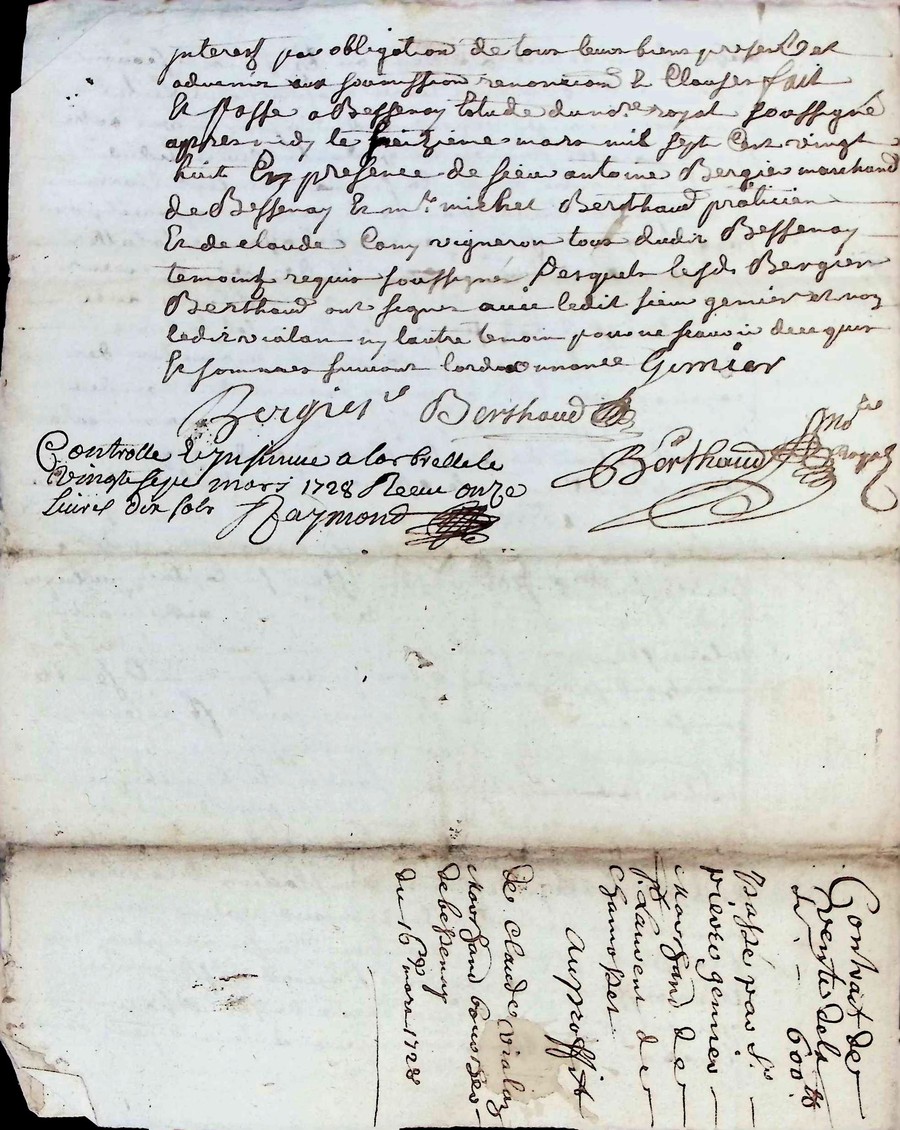 interest par obligation de tous leurs biens present et
advenir aux soumission renonciaon & Clauses fait
Et Passe a Bessenay Estude du no.re royal soussigné
appres midy le seizieme mars mil sept Cent vingt
huit En presence de sieur antoine Bergier marchand
de Bessenay Et m.re michel Berthaud praticien
Et de claude Cony vigneron tous dudit Bessenay
temoins requis soussignés Lesquels lesd. Bergier
Berthaud ont signes avec ledit sieur genier et non
ledit vialan ny lautre temoin pour ne scavoir de ce quis
Et sommes suivant lordonnance Genier
Bergier Berthaud
Berthaud no.re Royal
Controlle & insinue a larbrelle le
vingt sept mars 1728 Receu onze
Livres dix sols Raymond
Contrait de
vente de la
600 tt
passé par Sr
pierre gennier
marchand de
St Laurent de
Chamosset
au proffit
de Claude vialan
marchand
de bessenay
du 16e mars 1728